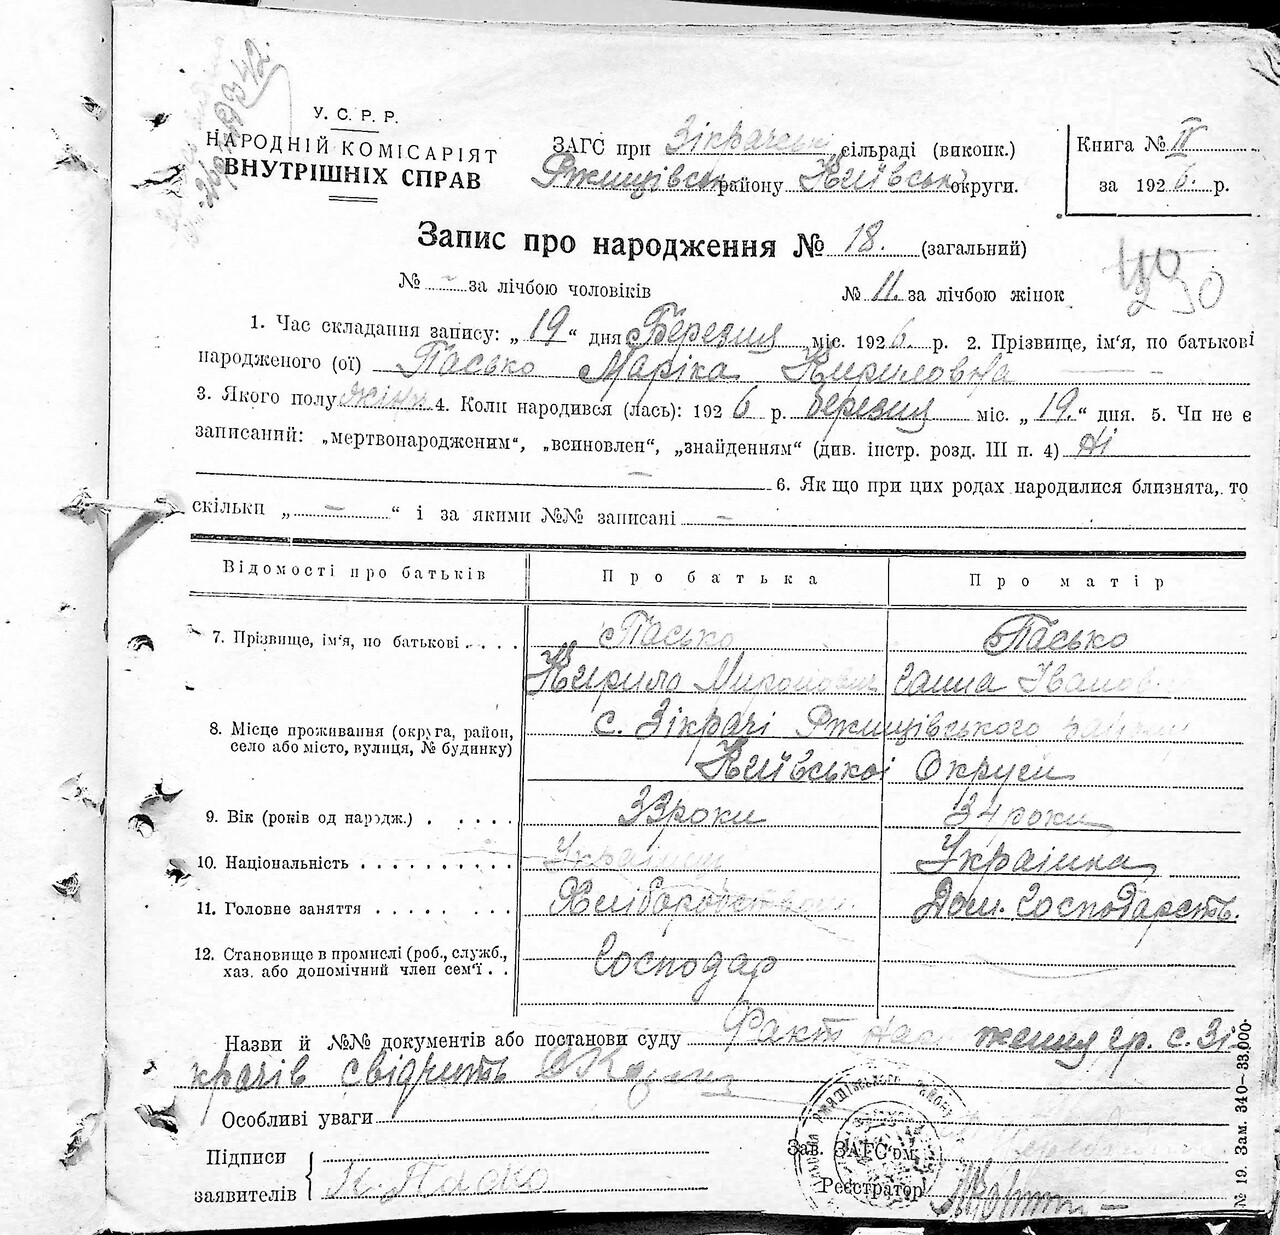 У. С. Р. Р.
НАРОДНІЙ КОМІСАРІЯТ
ВНУТРІШНІХ СПРАВ
ЗАГС при Зікрачськ сільраді (виконк.)
Ржищівськ району Київськ округи.
Книга № IV
за 1926 р.
Запис про народження № 18. (загальний)
№ – за лічбою чоловіків № 11. за лічбою жінок
40
250
1. Час складання запису: „19“ дня Березня міс. 1926 р. 2. Прізвище, ім‘я, по батькові
народженого (ої) Пасько Маріка Кириловна
3. Якого полу жіноч. 4. Коли народився (лась): 1926 р. березня міс. „19.“ дня. 5. Чи не є
записаний: „мертвонародженим“, „всиновлен“, „знайденням“ (див. інстр. розд. III п. 4) Ні
– 6. Як що при цих родах народилися близнята, то
скільки „ – “ і за якими №№ записані –
Відомості про батьків Про батька Про матір
7. Прізвище, ім‘я, по батькові Пасько Пасько
Кирило Миронович Ганна Івановна
8. Місце проживання (округа, район, с. Зікрачі Ржищівського району
село або місто, вулиця, № будинку) Київської Округи
9. Вік (років од народж.) 33 роки 34 роки
10. Національність Українець Українка
11. Головне заняття Хліборобством. Дом. Господарств.
12. Становище в промислі (роб., служб., Господар
хаз. або допомічний член сем‘ї
Назви й №№ документів або постанови суду Факт народження гр. с. Зі
крачів свідчить
Особливі уваги
Підписи
заявителів К. Пасько
Зав. ЗАГС‘ом
Реєстратор
№ 19. Зам. 340–33.000